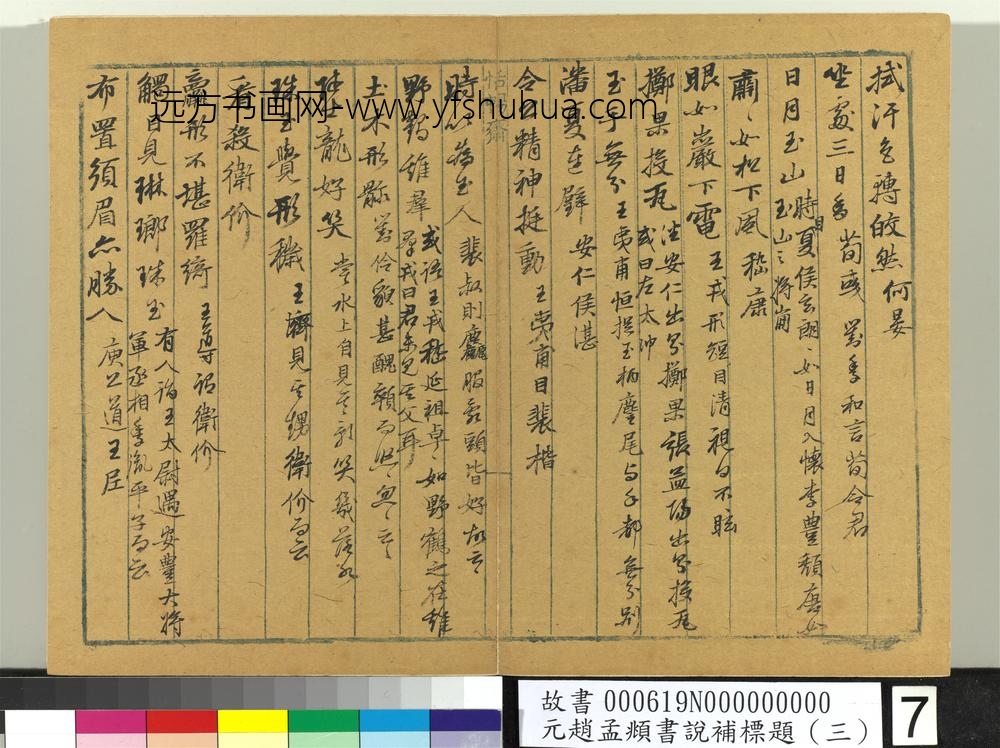 拭汗色轉皎然 何晏
坐處三日香 荀彧 劉季和言荀令君
日月玉山 時目夏侯玄朗如日月入懷李豐頹唐如
玉山之將崩
肅肅如松下風 嵇康
眼如巖下電 王戎形短目清視日不眩
擲果投瓦 潘安仁出每擲果張孟陽出每投瓦
或曰左太冲
玉手無分 王夷甫恒捉玉柄麈尾与手都無分別
潘夏連璧 安仁侯湛
令公精神挺動 王夷甫目裴楷
時以為玉人 裴叔則麤服乱頭皆好故云
野鶴雞羣 或語王戎嵇延祖卓卓如野鶴之在雞
羣戎曰君未見其父耳
土木形骸 劉伶貌甚醜顇而悠忽云
陸士龍好笑 嘗水上自見其影笑幾落水
珠玉覺形穢 王濟見其甥衛玠而云
看殺衛玠
羸形不堪羅綺 王導謂衛玠
觸目見琳瑯珠玉 有人詣王太尉遇安豐大將
軍丞相季胤平子而云
布置須眉亦勝人 庾公道王尼
远方书画网-www.yfshuhua.com
故書 000619N000000000
元趙孟頫書說補標題（三）
7